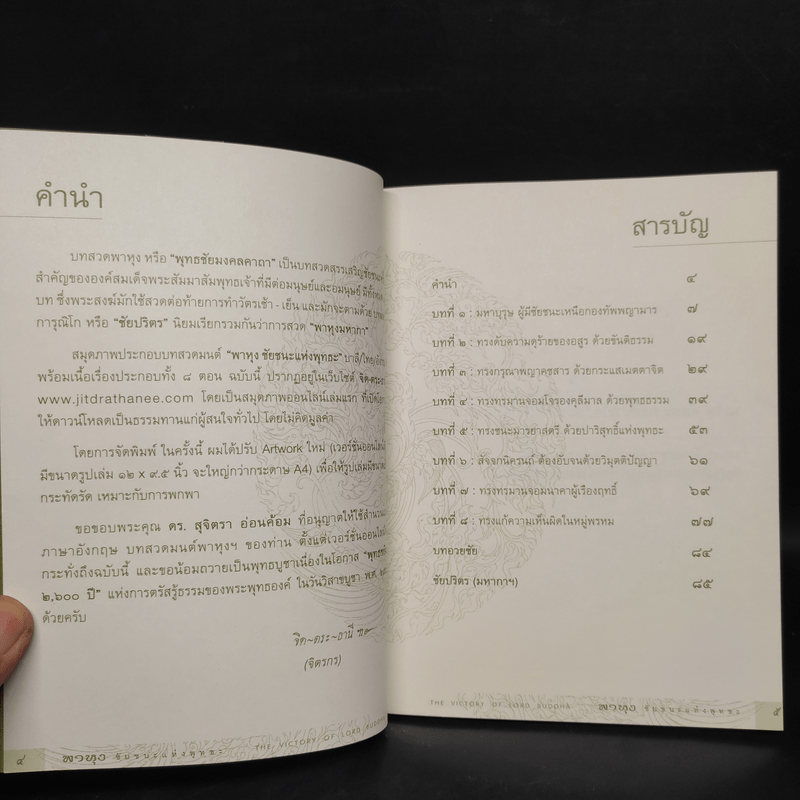 คำนำ
บทสวดพาหุง หรือ "พุทธชัยมงคลคาถา" เป็นบทสวดสรรเสริญชัยชนะ
สำคัญขององค์สมเด็จพระสัมมาสัมพุทธเจ้าที่มีต่อมนุษย์และอมนุษย์ มีทั้งหมด
บท ซึ่งพระสงฆ์มักใช้สวดต่อท้ายการทำวัตรเช้า - เย็น และมักจะตามด้วย
การุณิโก หรือ "ชัยปริตร" นิยมเรียกรวมกันว่าการสวด "พาหุงมหากา"
สมุดภาพประกอบบทสวดมนต์ "พาหุง ชัยชนะแห่งพุทธะ" บาลี/ไทย/
พร้อมเนื้อเรื่องประกอบทั้ง ๘ ตอน ฉบับนี้ ปรากฏอยู่ในเว็บไซต์
www.jitdrathanee.com โดยเป็นสมุดภาพออนไลน์เล่มแรก ที่เปิดโอ
ให้ดาวน์โหลดเป็นธรรมทานแก่ผู้สนใจทั่วไป โดยไม่คิดมูลค่า
โดยการจัดพิมพ์ ในครั้งนี้ ผมได้ปรับ Artwork ใหม่ (เวอร์ชั่นออนไลน์
มีขนาดรูปเล่ม ๑๒ x ๙.๕ นิ้ว จะใหญ่กว่ากระดาษ A4) เพื่อให้รูปเล่มมีขนา
กระทัดรัด เหมาะกับการพกพา
ขอขอบพระคุณ ดร. สุจิตรา อ่อนค้อม ที่อนุญาตให้ใช้สำนวน
ภาษาอังกฤษ บทสวดมนต์พาหุงฯ ของท่าน ตั้งแต่เวอร์ชั่นออนไลน์
กระทั่งถึงฉบับนี้ และขอน้อมถวายเป็นพุทธบูชาเนื่องในโอกาส "พุทธ
๒,๖๐๐ ปี" แห่งการตรัสรู้ธรรมของพระพุทธองค์ ในวันวิสาขบูชา พ.ศ.
ด้วยครับ
จิต~ตระ~ธานี
(จิตรกร)
๔ พาหุง ชัยชนะแห่งพุทธะ THE VICTORY OF LORD BUDDHA
สารบัญ
คำนำ ๔
บทที่ ๑ : มหาบุรุษ ผู้มีชัยชนะเหนือกองทัพพญามาร ๗
บทที่ ๒ : ทรงดับความดุร้ายของอสูร ด้วยขันติธรรม ๑๙
บทที่ ๓ : ทรงกรุณาพญาคชสาร ด้วยกระแสเมตตาจิต ๒๙
บทที่ ๔ : ทรงทรมานจอมโจรองคุลีมาล ด้วยพุทธธรรม ๓๙
บทที่ ๕ : ทรงชนะมารยาสตรี ด้วยปาริสุทธิ์แห่งพุทธะ ๕๓
บทที่ ๖ : สัจจกนิครนถ์ ต้องอับจนด้วยวิมุตติปัญญา ๖๑
บทที่ ๗ : ทรงทรมานจอมนาคาผู้เรืองฤทธิ์ ๖๙
บทที่ ๘ : ทรงแก้ความเห็นผิดในหมู่พรหม ๗๗
บทอวยชัย ๘๔
ชัยปริตร (มหากาฯ) ๘๕
THE VICTORY OF LORD BUDDHA พาหุง ชัยชนะแห่งพุทธะ ๕